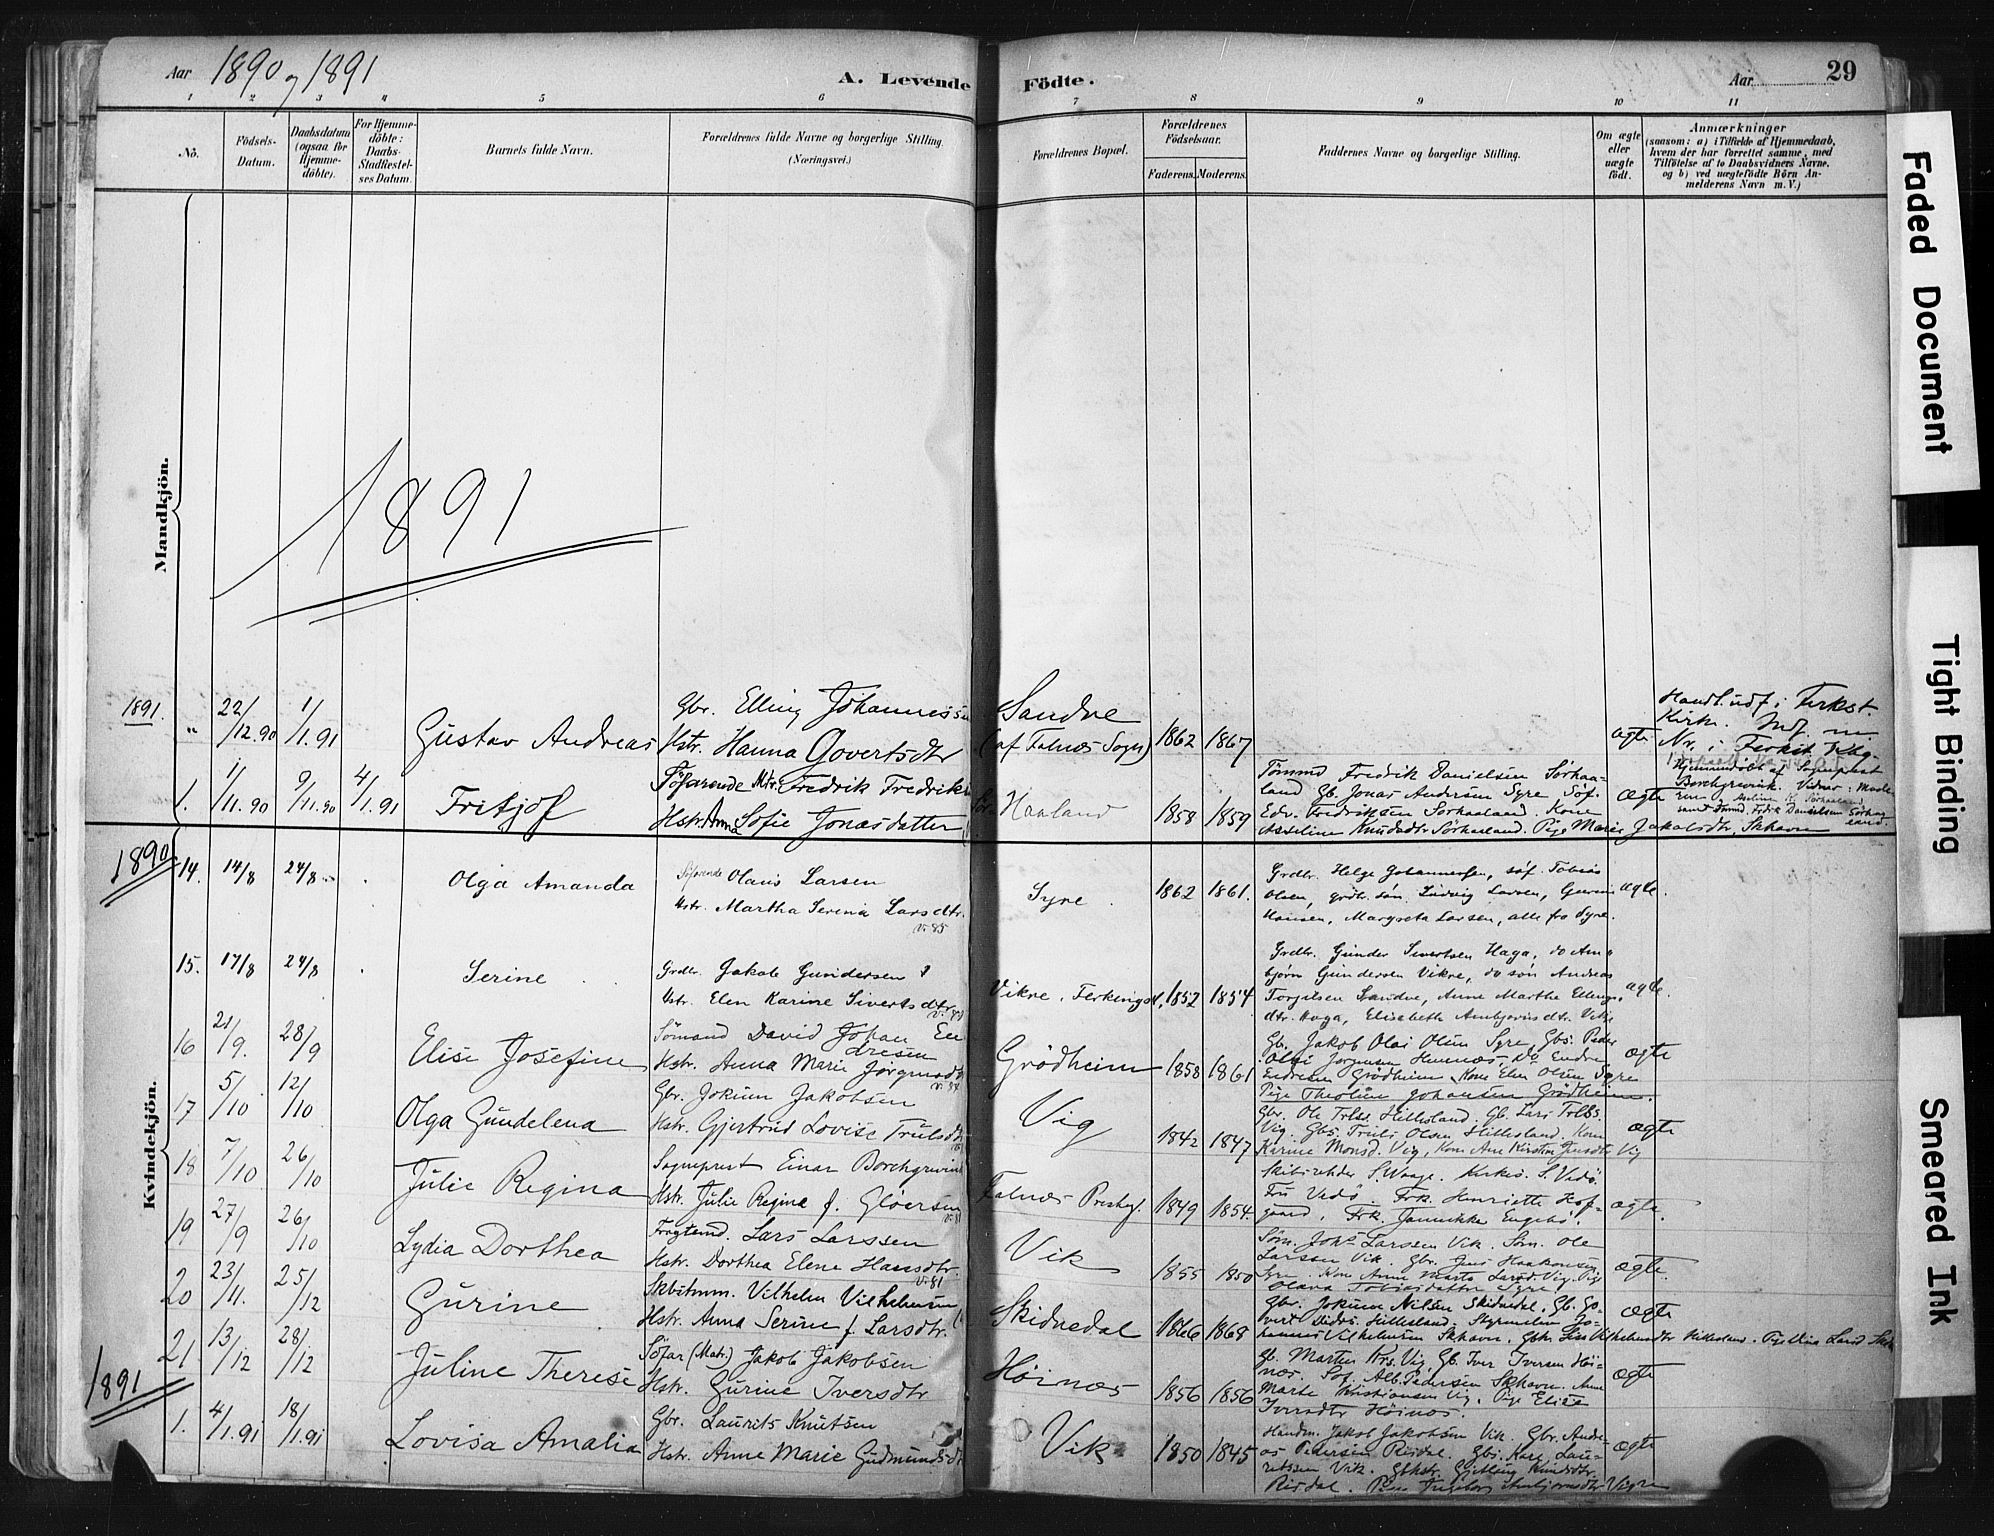 Aar 1890 og 1891
A. Levende Födte.
Aar 29
1 2 3 4 5 6 7 8 9 10 11
No.
Födsels-
Datum.
Daabsdatum
(ogsaa for
Hjemme-
döbte).
For Hjemme-
döbte:
Daabs-
Stadfæstel-
ses Datum.
Barnets fulde Navn.
Forældrenes fulde Navne og borgerlige Stilling.
(Næringsvei.)
Forældrenes Bopæl.
Forældrenes
Födselsaar.
Faderens. Moderens.
Faddernes Navne og borgerlige Stilling.
Om ægte
eller
uægte
født.
Anmærkninger
(saasom: a) i Tilfælde af Hjemmedaab,
hvem der har forrettet samme, med
Tilföielse af to Daabsvidners Navne,
og b) ved uægtefödte Börn An-
melderens Navn m. V.)
Mandkjön.
1891
1891. " 22/12.90 1/1.91 Gustav Andreas
Gbr. Elling Johannessen
Hstr. Hanna Govertsdtr
Sandve
(af Falnæs Sogn)
1862 1867 ægte
Kirke.
1. 1/11.90 9/11.90 4/1.91 Fritjof
Söfarende Mtr. Fredrik Fredriks
Hstr. Sofie Jonasdatter
Haaland 1858 1859
Tömmd Fredrik Danielsen Sørhaa-
land Gb. Jonas Andersen Syre Söf.
Edv. Fredriksen Sørhaaland. Kone
Asseline Knudsdtr Sørhaaland. Pige Marie Jakobsdtr, Skhavn
ægte
Hjemmedöbt af Sogneprest
Borchgrevink. Vidner:
Kvindekjön.
1890
14. 14/8 24/8 Olga Amanda
Söfarende Olaus Larsen
Hstr. Martha Serina Larsdtr.
V. 85
Syre 1862 1861.
Grdbr. Helge Johannessen, söf. Tobias
Olsen, grdbr. søn Ludvig Larsen,
Hansen, Margreta Larsen, alle fra Syre.
ægte.
15. 17/8 24/8 Serine
Grdbr. Jakob Gundersen
Hstr. Elen Karine Sivertsdtr
Vikre, Ferkingst. 1852 1854
Grdbr. Gunder Sivertsen Haga, do Am-
björn Gundersen Vikre, do søn Andreas
Torgilsen Sandve, Anne Marthe Ellings-
dtr. Haga, Elisabeth Ambjörnsdtr. Vikre
ægte.
16 21/9. 28/9 Elise Josefine
Sömand David Johan En-
dresen
Hstr. Anna Marie Jörgensdtr
Grödheim 1858 1861
Gb. Jakob Olai Olsen Syre, Gbs. Peder
Olai Jørgensen Hemnæs, Do Endre
Endresen Grödheim, Kone Elen Olsen Syre
Pige Theoline Johansen Grödheim.
ægte
17 5/10 12/10 Olga Gundelena
Gbr. Jokum Jakobsen
Hstr. Gjertrud Lovise Trulsdtr
Vig 1842 1847
Gbr. Ole Trlse Hillesland. Gb. Lars Trlss.
Vig. Gbs. Truls Olsen Hillesland. Kone
Karine Monsd. Vig, Kone Ane Kirstine Vig
ægte
18 7/10 26/10 Julie Regina
Sogneprest Einar Borchgrevink
Hstr. Julie Regina f. Gløersen
Falnæs Prestg. 1849 1854.
Skibsreder S. Waage. S. Vedö.
Fru Vedö. Frk. Henriette Hof-
gaard, Frk. Jannikke Engebö.
ægte.
19 27/9 26/10 Lydia Dorthea
Fragtemd. Lars Larssen
Hstr. Dorthea Elene Hansdtr.
V. 81
Vik 1855 1850
Søm. Johs Larssen Vik. Søm. Ole
Larssen Vik. Gbr. Jens Haakonsen
Syre. Kone Anne Marta Larsd. Vig. Pig
Olava Tobiasdatter Syre.
ægte.
20 23/11. 25/12 Gurine
Skbtmm. Vilhelm Vilhelmsen
Hstr. Anna Serine f. Larsdtr.
Skidnedal 1866 1868
Gbr. Jokum Nilsen Skidnedal, Gb. Go-
vert Vidds. Hillesland. Styrmden Jo-
hannes Vilhelmsen Skhavn.
ægte
21 13/12 28/12 Juline Therese
Söfar (Matr.) Jakob Jakobsen
Hstr. Gurine Iversdtr
Höinæs 1856 1856
Gb. Marten Krs. Vig, Gb. Iver Iversen Höi-
næs. Söf. Alb. Pedersen Skhavn. Anne
Marte Kristiansen Vig, Pige Elise
Iversdtr Höinæs.
ægte
1891
1. 4/1.91 18/1.91 Lovisa Amalia
Gbr. Laurits Knutsen
Hstr. Anne Marie Gudmundsdtr
Vik 1850 1845
Handm. Jakob Jakobsen Vik. Gbr. Andre-
as Pedersen Risdal. Gbs. Karl Lau-
ritssen Vik. Gbhstr. Knudsdtr.
Risdal. Pige Ingeborg Ambjörnsdtr Vigre
ægte
Faded Document
Tight Binding
Smeared Ink